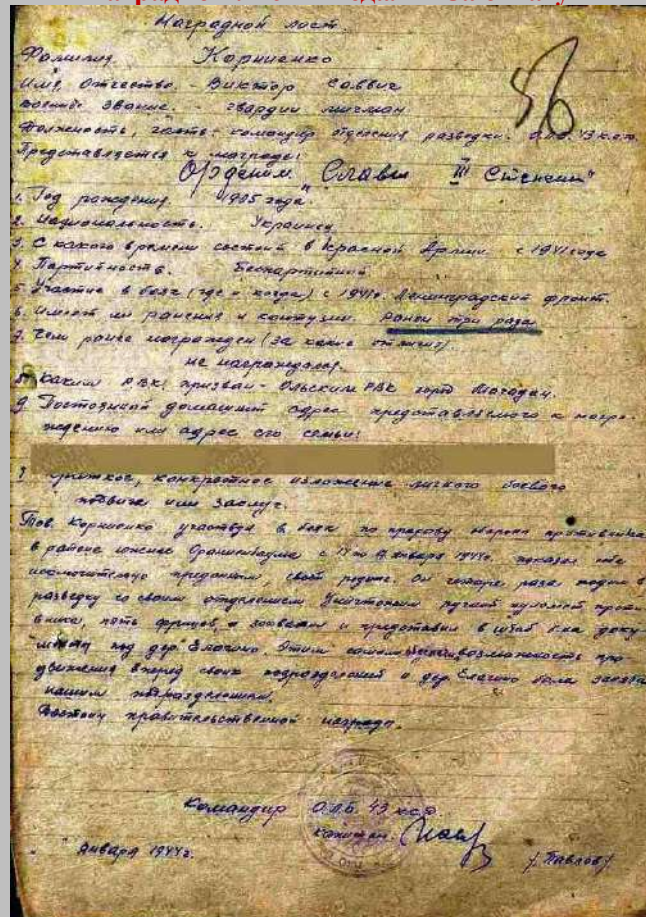 Наградной лист.
56
Фамилия Корниенко
Имя, Отчество. - Виктор Саввич
Военное звание. - гвардии мичман
Должность, часть - командир отделения разведки. О.Л.Б. 43 к.с.д.
Представляется к награде:
Орденом "Славы III Степени"
1. Год рождения 1925 года.
2. Национальность. Украинец
3. С какого времени состоит в Красной Армии с 1941 года
4. Партийность. Беспартийный
5. Участие в боях (где и когда) с 1941г. Ленинградский фронт.
6. Имеет ли ранения и контузии. Ранен три раза
7. Чем ранее награжден (за какие отличия).
не награждался.
8. Каким РВК призван - Ольским РВК город Магадан.
9. Постоянный домашний адрес представляемого к награ-
ждению или адрес его семьи:
Краткое, конкретное изложение личного боевого
подвига или заслуг.
Тов. Корниенко участвуя в боях по прорыву обороны противника
в районе южнее Ораниенбаума с по января 1944г. показал себя
исключительно преданным, своей родине. Он четыре раза ходил в
разведку со своим отделением. Уничтожил ручной пулемет проти-
вника, пять фрицев, и захватил и представил в штаб доку-
менты под дер. Елагино. Этим самым возможность про
движения вперед своих подразделений и дер. Елагино была занята
нашим подразделением.
Достоин правительственной награды.
Командир О.Л.Б. 43 к.с.д.
капитан
/Павлов/
" " января 1944г.